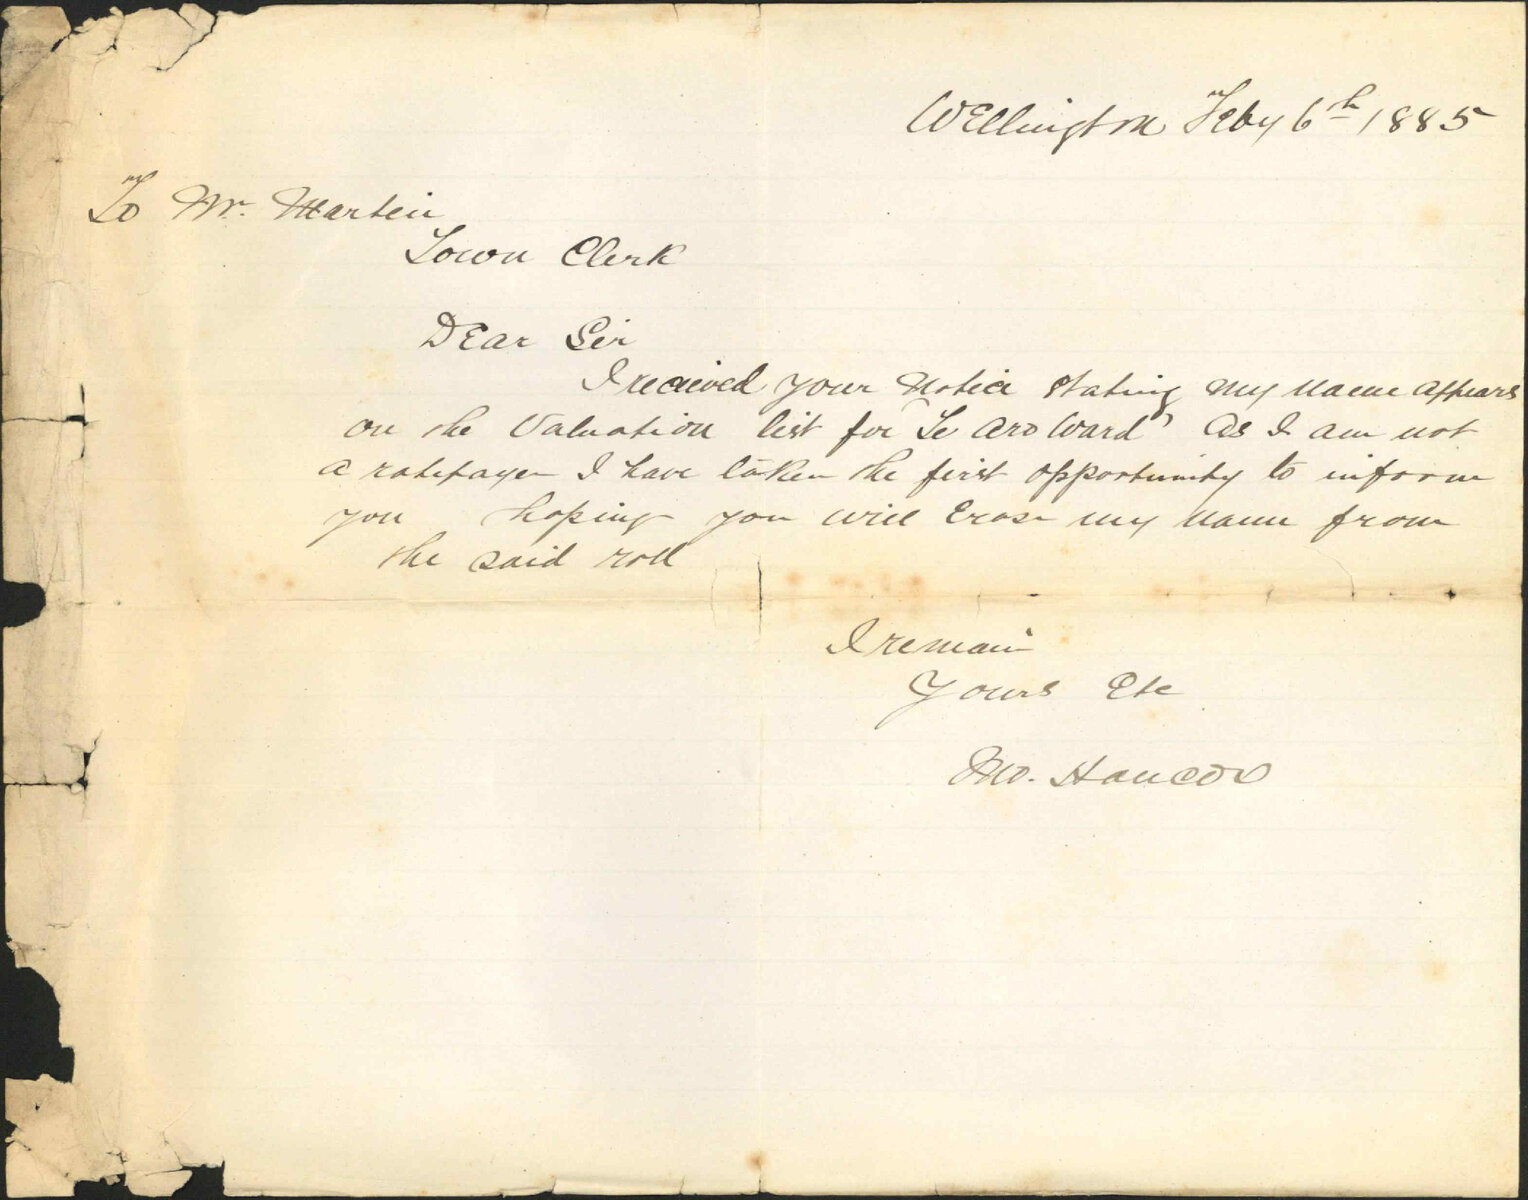 Wellington Feby 6th 1885
To Mr. Martin
Town Clerk
Dear Sir
I recieved your Notice stating my name appears
on the Valuation list for "Te Aro Ward" As I am not
a ratepayer I have taken the first opportunity to inform
you hoping you will Erase my name from
the said roll
I remain
Yours Etc
Hancox